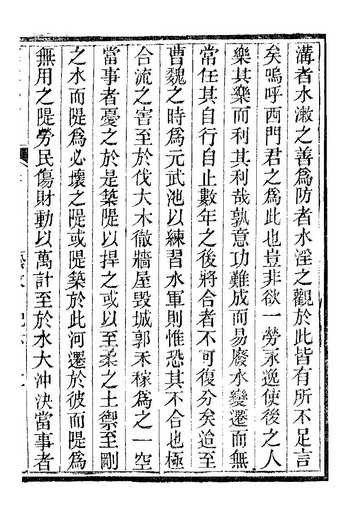 溝者水潄之善爲防者水淫之觀於此皆有所不足言
矣嗚呼西門君之爲此也豈非欲一勞永逸使後之人
樂其樂而利其利哉孰意功難成而易廢水變遷而無
常任其自行自止數年之後將合者不可復分矣迨至
曹魏之時爲元武池以練習水軍則惟恐其不合也極
合流之害至於伐大木徹牆屋毀城郭禾稼爲之一空
當事者憂之於是築隄以捍之或以至柔之土禦至剛
之水而隄爲必壞之隄或隄築於此河遷於彼而隄爲
無用之隄勞民傷財動以萬計至於水大沖決當事者